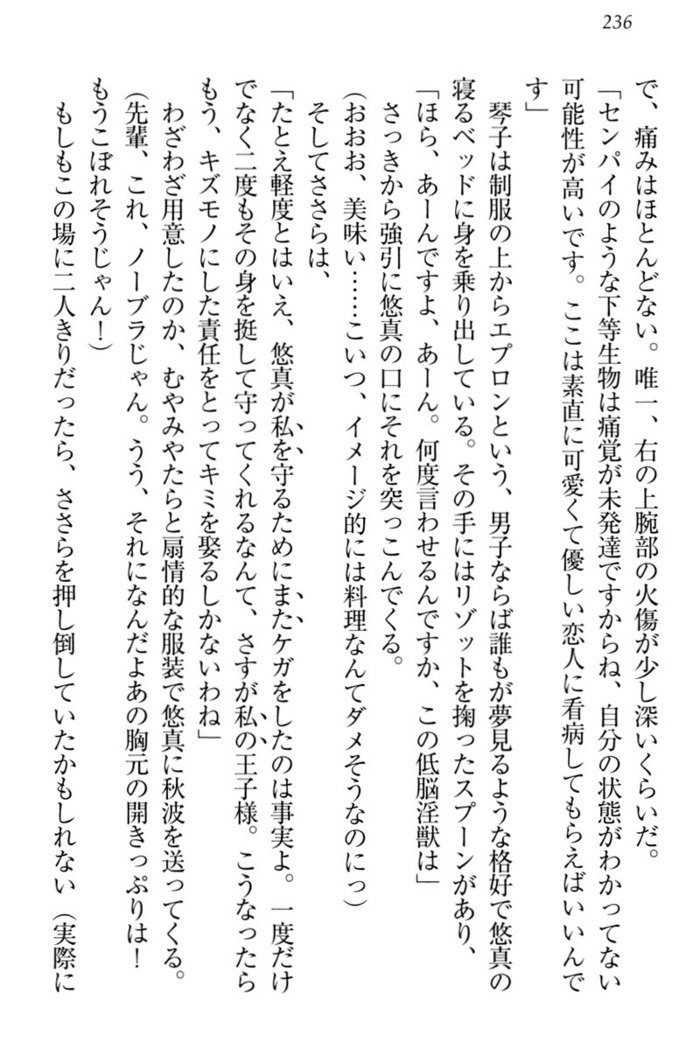 236
で、痛みはほとんどない。唯一、右の上腕部の火傷が少し深いくらいだ。
「センパイのような下等生物は痛覚が未発達ですからね、自分の状態がわかってない
可能性が高いです。ここは素直に可愛くて優しい恋人に看病してもらえばいいんで
す」
琴子は制服の上からエプロンという、男子ならば誰もが夢見るような格好で悠真の
寝るベッドに身を乗り出している。その手にはリゾットを掬ったスプーンがあり、
「ほら、あーんですよ、あーん。何度言わせるんですか、この低脳淫獣は」
さっきから強引に悠真の口にそれを突っこんでくる。
(おおお、美味い……こいつ、イメージ的には料理なんてダメそうなのにっ)
そしてささらは、
「たとえ軽度とはいえ、悠真が私を守るためにまたケガをしたのは事実よ。一度だけ
でなく二度もその身を挺して守ってくれるなんて、さすが私の王子様。こうなったら
もう、キズモノにした責任をとってキミを娶るしかないわね」
わざわざ用意したのか、むやみやたらと扇情的な服装で悠真に秋波を送ってくる。
(先輩、これ、ノーブラじゃん。うう、それになんだよあの胸元の開きっぷりは!
もうこぼれそうじゃん!)
もしもこの場に二人きりだったら、ささらを押し倒していたかもしれない(実際に